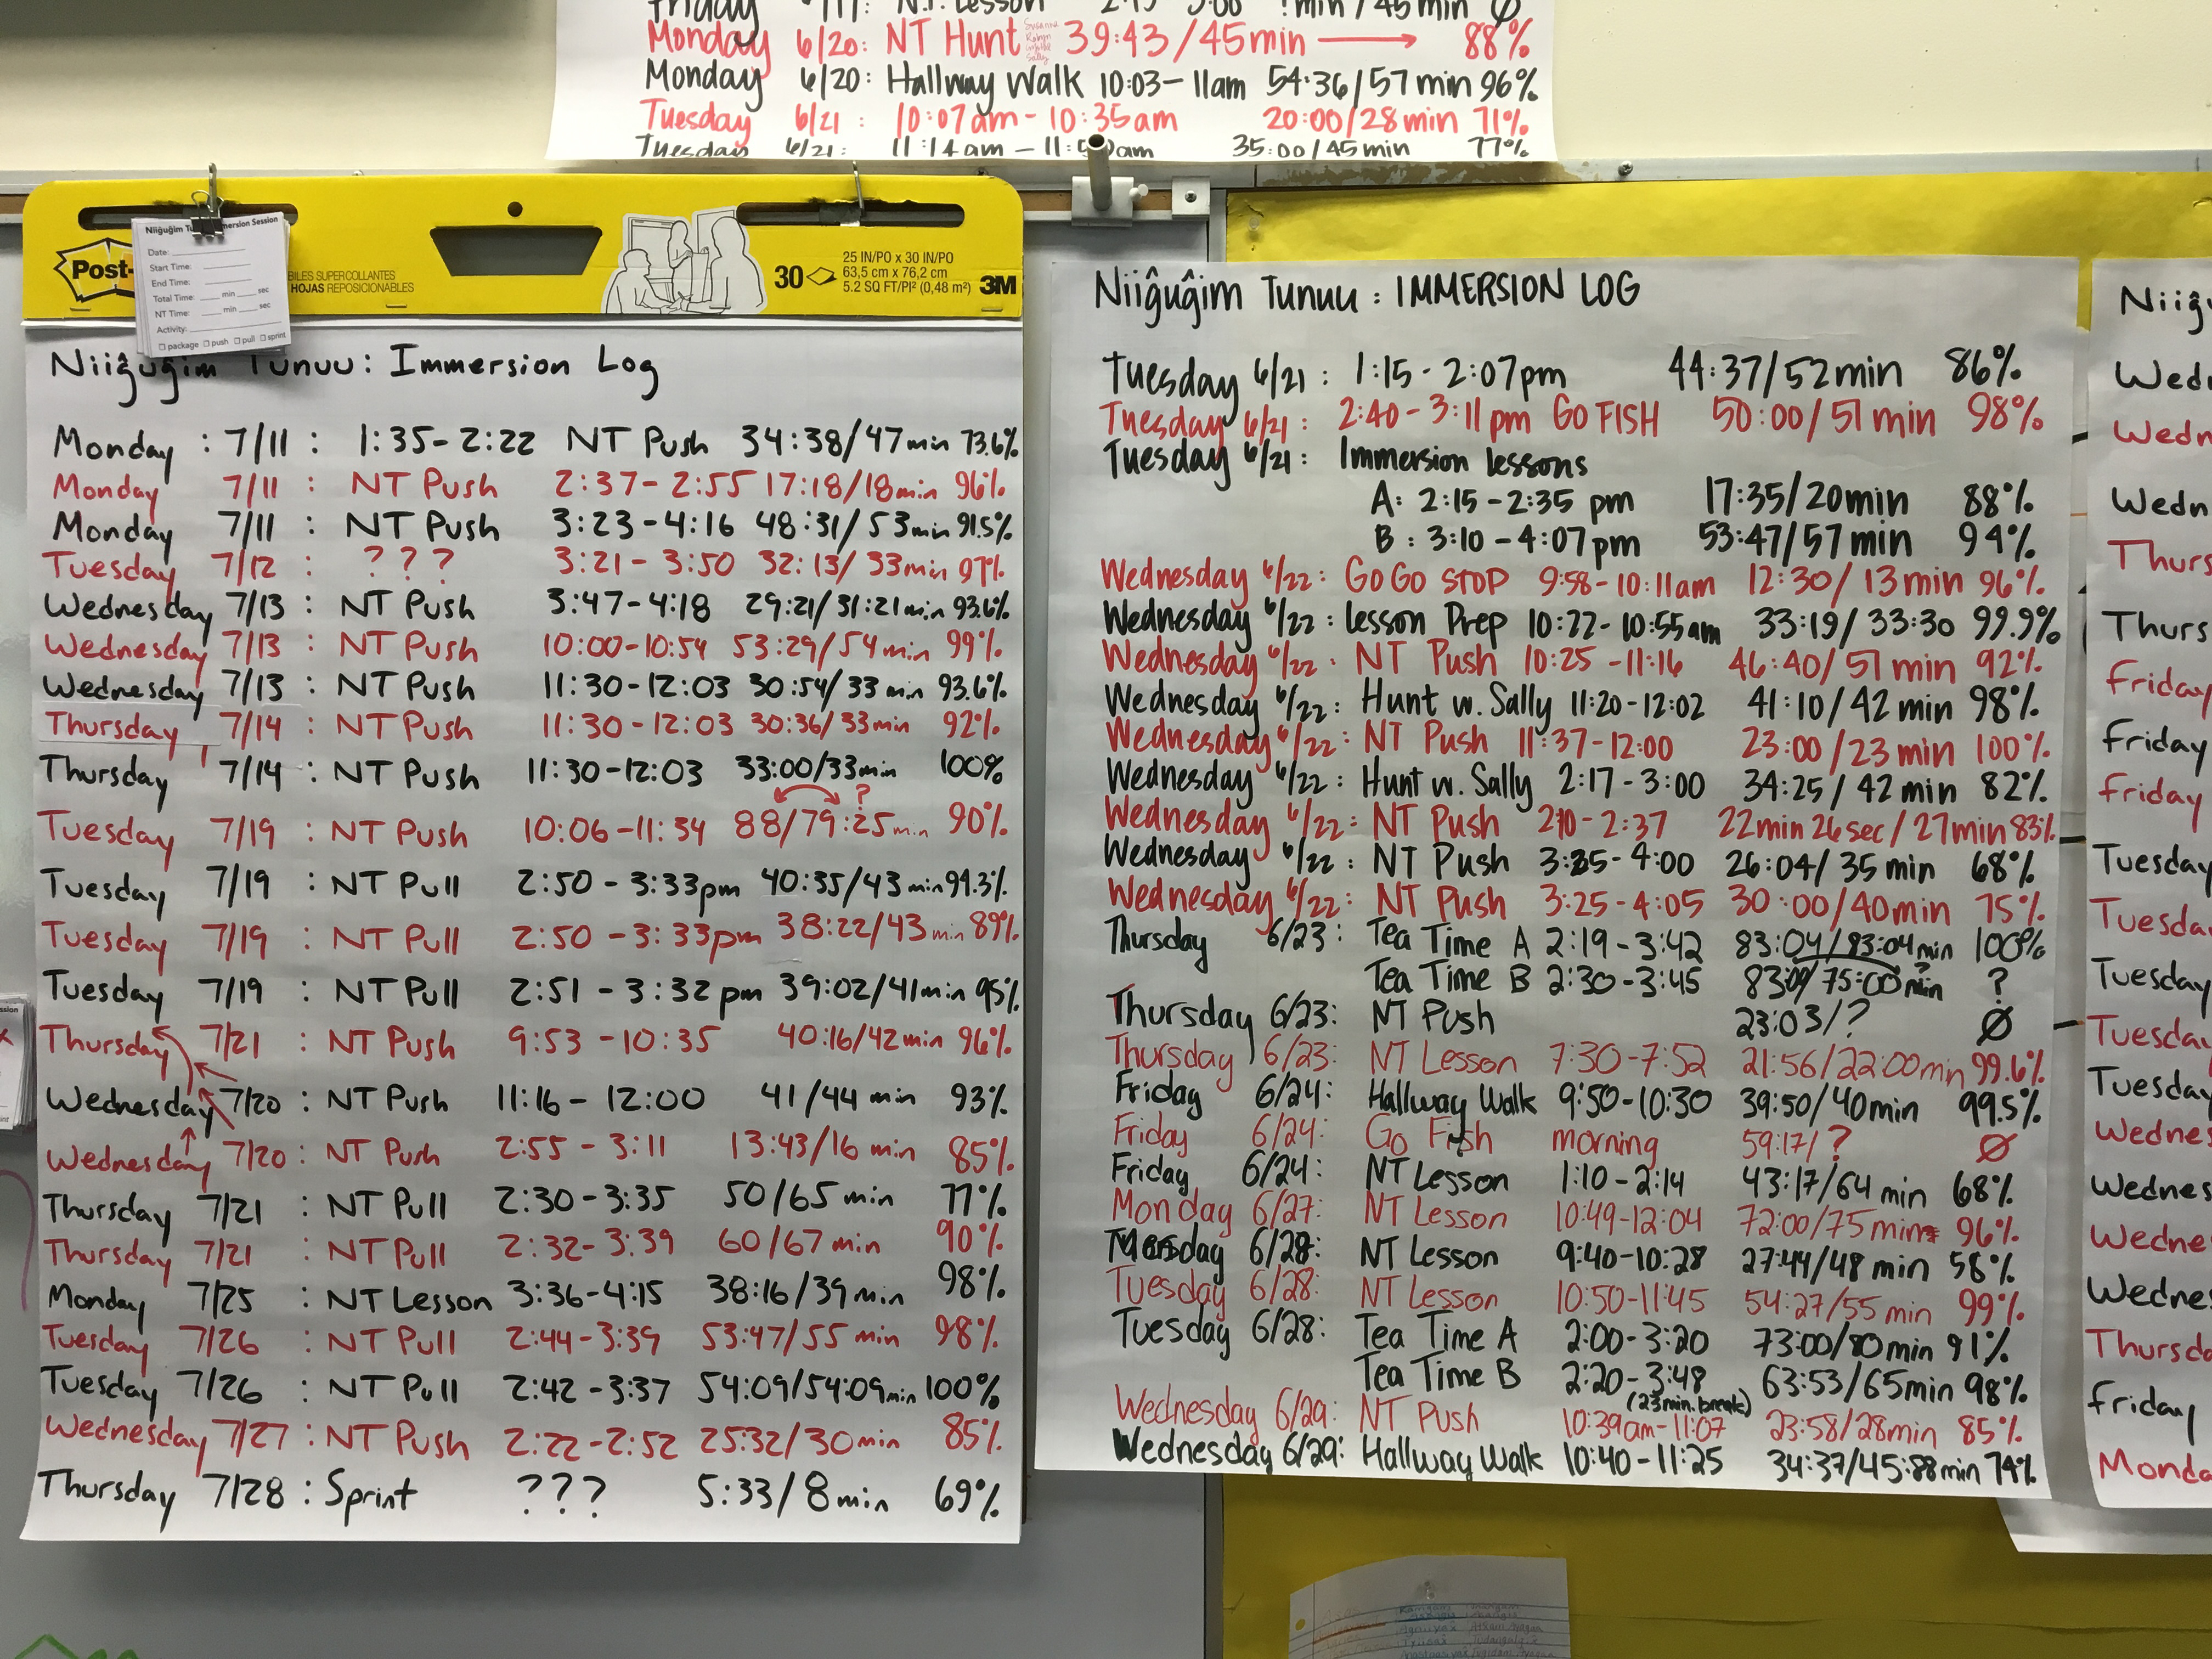 Friday 6/17: N.T. Lesson
Monday 6/20: NT Hunt 39:43/45min → 88%
Monday 6/20: Hallway Walk 10:03-11am 54:36/57 min 96%
Tuesday 6/21: 10:07am-10:35am 20:00/28min 71%
Tuesday 6/21: 11:14am - 35:00/45min 77%
Post-
BILES SUPERCOLLANTES
HOJAS REPOSICIONABLES
30
25 IN/PO x 30 IN/PO
63,5 cm x 76,2 cm
5.2 SQ FT/PI² (0,48 m²)
3M
Niiĝuĝim Tu mersion Session
Date:
Start Time:
End Time:
Total Time: min sec
NT Time: min sec
Activity:
☐ package ☐ push ☐ pull ☐ sprint
Niiĝuĝim Tunuu: Immersion Log
Monday: 7/11: 1:35-2:22 NT Push 34:38/47min 73.6%
Monday 7/11: NT Push 2:37-2:55 17:18/18min 96%
Monday 7/11: NT Push 3:23-4:16 48:31/53min 91.5%
Tuesday 7/12: ??? 3:21-3:50 32:13/33min 97%
Wednesday 7/13: NT Push 3:47-4:18 29:21/31:21min 93.6%
Wednesday 7/13: NT Push 10:00-10:54 53:29/54min 99%
Wednesday 7/13: NT Push 11:30-12:03 30:54/33min 93.6%
Thursday 7/14: NT Push 11:30-12:03 30:36/33min 92%
Thursday 7/14: NT Push 11:30-12:03 33:00/33min 100%
?
Tuesday 7/19: NT Push 10:06-11:34 88/79:25min 90%
Tuesday 7/19: NT Pull 2:50-3:33pm 40:35/43min 94.3%
Tuesday 7/19: NT Pull 2:50-3:33pm 38:22/43min 89%
Tuesday 7/19: NT Pull 2:51-3:32pm 39:02/41min 95%
Thursday 7/21: NT Push 9:53-10:35 40:16/42min 96%
Wednesday 7/20: NT Push 11:16-12:00 41/44 min 93%
Wednesday 7/20: NT Push 2:55-3:11 13:43/16 min 85%
Thursday 7/21: NT Pull 2:30-3:35 50/65 min 77%
Thursday 7/21: NT Pull 2:32-3:39 60/67 min 90%
Monday 7/25: NT Lesson 3:36-4:15 38:16/39min 98%
Tuesday 7/26: NT Pull 2:44-3:39 53:47/55 min 98%
Tuesday 7/26: NT Pull 2:42-3:37 54:09/54:09min 100%
Wednesday 7/27: NT Push 2:22-2:52 25:32/30min 85%
Thursday 7/28: Sprint ??? 5:33/8min 69%
Niiĝuĝim Tunuu: IMMERSION LOG
Tuesday 6/21: 1:15-2:07pm 44:37/52min 86%
Tuesday 6/21: 2:40-3:11pm GO FISH 50:00/51min 98%
Tuesday 6/21: Immersion lessons
A: 2:15-2:35 pm 17:35/20min 88%
B: 3:10-4:07pm 53:47/57min 94%
Wednesday 6/22: GO GO STOP 9:58-10:11am 12:30/13min 96%
Wednesday 6/22: Lesson Prep 10:22-10:55am 33:19/33:30 99.9%
Wednesday 6/22: NT Push 10:25-11:16 46:40/51min 92%
Wednesday 6/22: Hunt w. Sally 11:20-12:02 41:10/42 min 98%
Wednesday 6/22: NT Push 11:37-12:00 23:00/23 min 100%
Wednesday 6/22: Hunt w. Sally 2:17-3:00 34:25/42 min 82%
Wednesday 6/22: NT Push 2:10-2:37 22min 26sec/27min 83%
Wednesday 6/22: NT Push 3:25-4:00 26:04/35 min 68%
Wednesday 6/22: NT Push 3:25-4:05 30:00/40min 75%
Thursday 6/23: Tea Time A 2:19-3:42 83:04/83:04min 100%
Tea Time B 2:30-3:45 83:09/75:00min ?
Thursday 6/23: NT Push 23:03/? Ø
Thursday 6/23: NT Lesson 7:30-7:52 21:56/22:00min 99.6%
Friday 6/24: Hallway Walk 9:50-10:30 39:50/40min 99.5%
Friday 6/24: Go Fish morning 59:17/? Ø
Friday 6/24: NT Lesson 1:10-2:14 43:17/64 min 68%
Monday 6/27: NT Lesson 10:49-12:04 72:00/75 min 96%
Tuesday 6/28: NT Lesson 9:40-10:28 27:44/48 min 58%
Tuesday 6/28: NT Lesson 10:50-11:45 54:27/55 min 99%
Tuesday 6/28: Tea Time A 2:00-3:20 73:00/80min 91%
Tea Time B 2:20-3:48 63:53/65min 98%
(23min. break)
Wednesday 6/29: NT Push 10:39am-11:07 23:58/28min 85%
Wednesday 6/29: Hallway Walk 10:40-11:25 34:37/45:88min 74%
Niiĝ
Wedn
Wedn
Wedn
Thurs
Thurs
Friday
Friday
Friday
Tuesday
Tuesda
Tuesday
Tuesda
Tuesday
Wednes
Wednes
Wedne
Wednes
Thursda
Friday
Monda